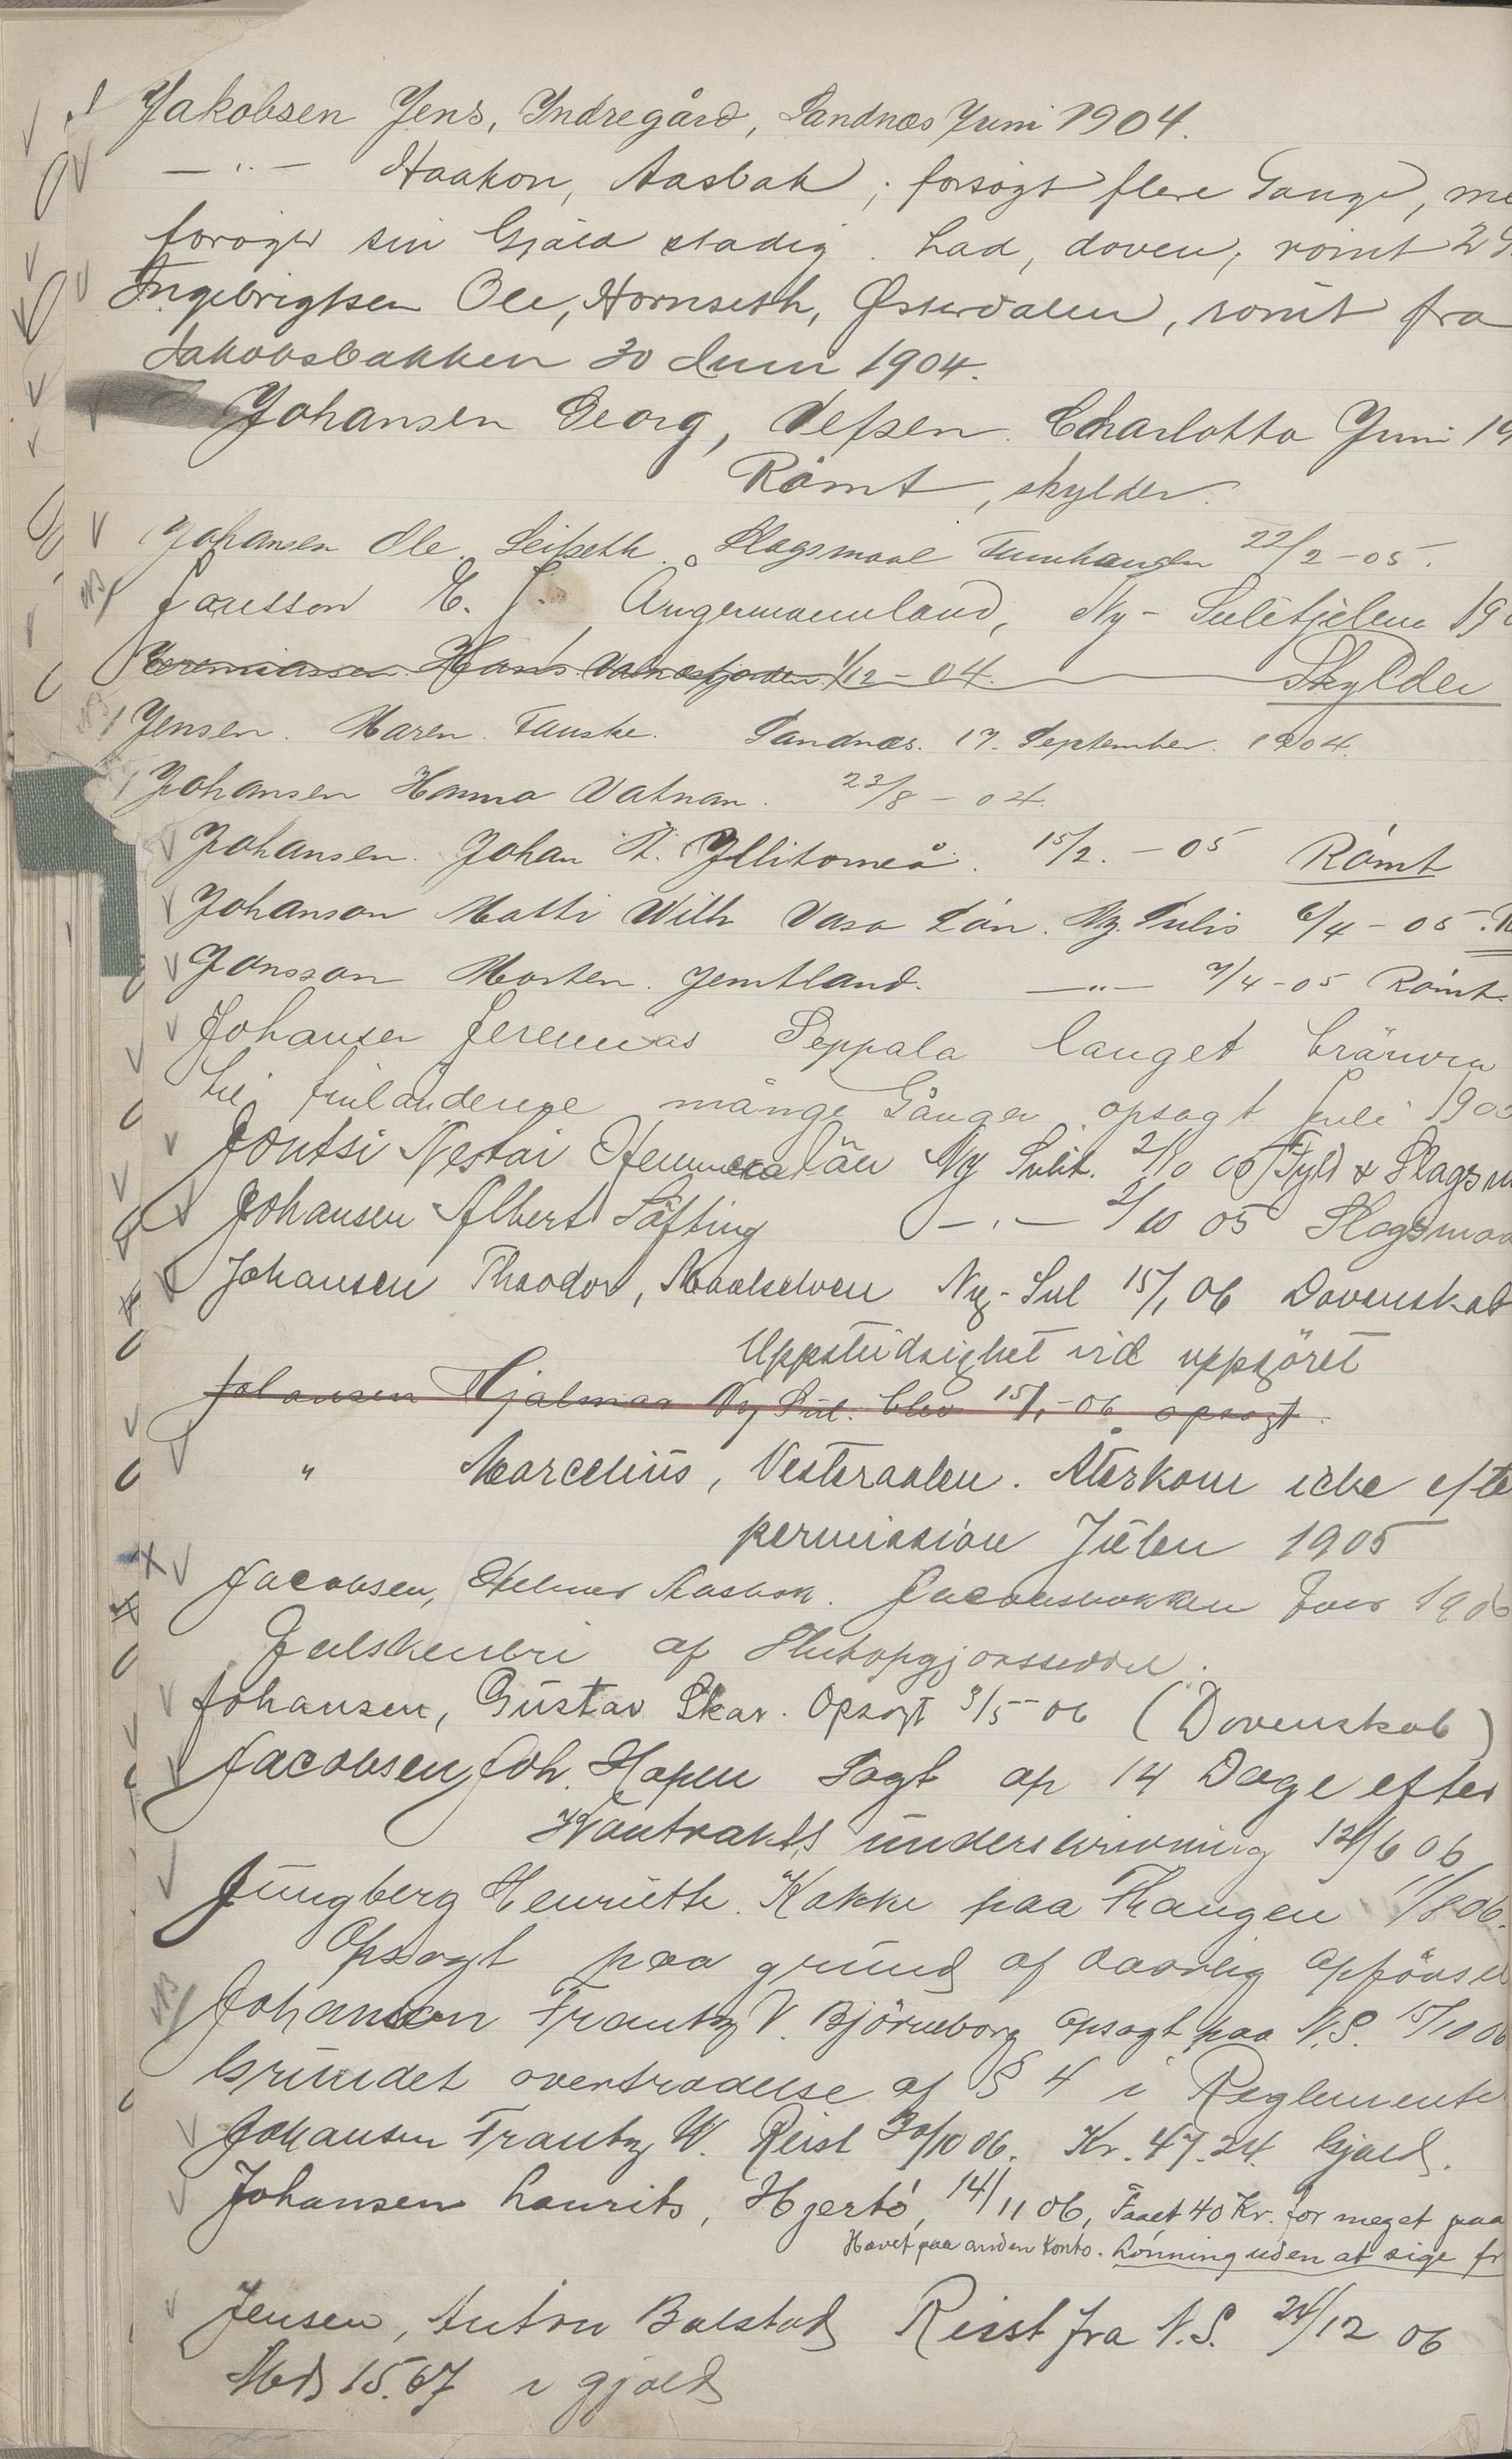 Jakobsen Jens, Indregård, Sandnæs Juni 1904.
— " — Haakon, Aasbak; forsøgt flere Gange, me
forøger sin Gjæld stadig. Lad, doven, römt 29
Ingebrigtsen Ole, Hornseth, Østerdalen, römt fra
Jakobsbakken 30 Juni 1904.
Johansen Georg, Vefsen. Charlotta Juni 19
Römt, skylder.
Johansen Ole Leifseth Slagsmaal Furuhaugen 22/2 - 05.
Jonsson E. J. Ångermannland, Ny-Sulitjelma 190
Jeremiassen Hans Valnesfjorden 1/12 - 04. Skylder
Jensen. Maren. Fauske. Sandnæs. 17. September. 1904.
Johansen Hanna Vatnan. 23/8 - 04.
Johansen. Johan H. Yllitorneå. 15/2. - 05 Römt
Johanson Matti Wilh Vasa Län. Ny. Sulis 6/4 - 05.
Jonsson Morten. Jemtland. — " — 7/4 - 05 Römt.
Johansen Jeremias Seppala langet brännvin
til finländerne månge Gånger opsagt Juli 190
Jontsi Nestai län Ny Sulit. 2/10 05 Fyld & Slagsm
Johansen Albert Täfting — " — 2/10 05 Slagsmaa
Johansen Theodor, Maalselven Ny-Sul 15/1 06 Dovenskab
Uppstudsighet vid uppgöret
Johansen Hjalmar Ny Sul. blev 15/1 - 06 opsagt.
" Marcelius, Vesteraalen. Återkom icke efte
permission Julen 1905
Jacobsen, Helmer Aasbak. Jacobsbakken Juni 190
Falskeneri af Slutopgjørsseddel.
Johansen, Gustav Skar. Opsagt 3/5 - 06 (Dovenskab)
Jacobsen, Joh. Hopen Sagt op 14 Dage efter
Kontrakts underskrivning 12/6 06
Jungberg Henriette. Kokke paa Thangen 11/8 06.
Opsagt paa grund af daarlig opførsel
Johanson Frantz V. Björneborg opsagt paa N.S. 15/10 06
Grundet overtrædelse af § 4 i Reglemente
Johansen Frantz W. Reist 30/10 06. Kr. 47.24. Gjæld.
Johansen Laurits, Hjertö, 14/11 06, Faaet 40 Kr. for meget paa
Hævet paa anden Konto. Lønning uden at sige fr
Jensen, Anton Balstad Reist fra N.S. 24/12 06
Med 15.67 i gjæld